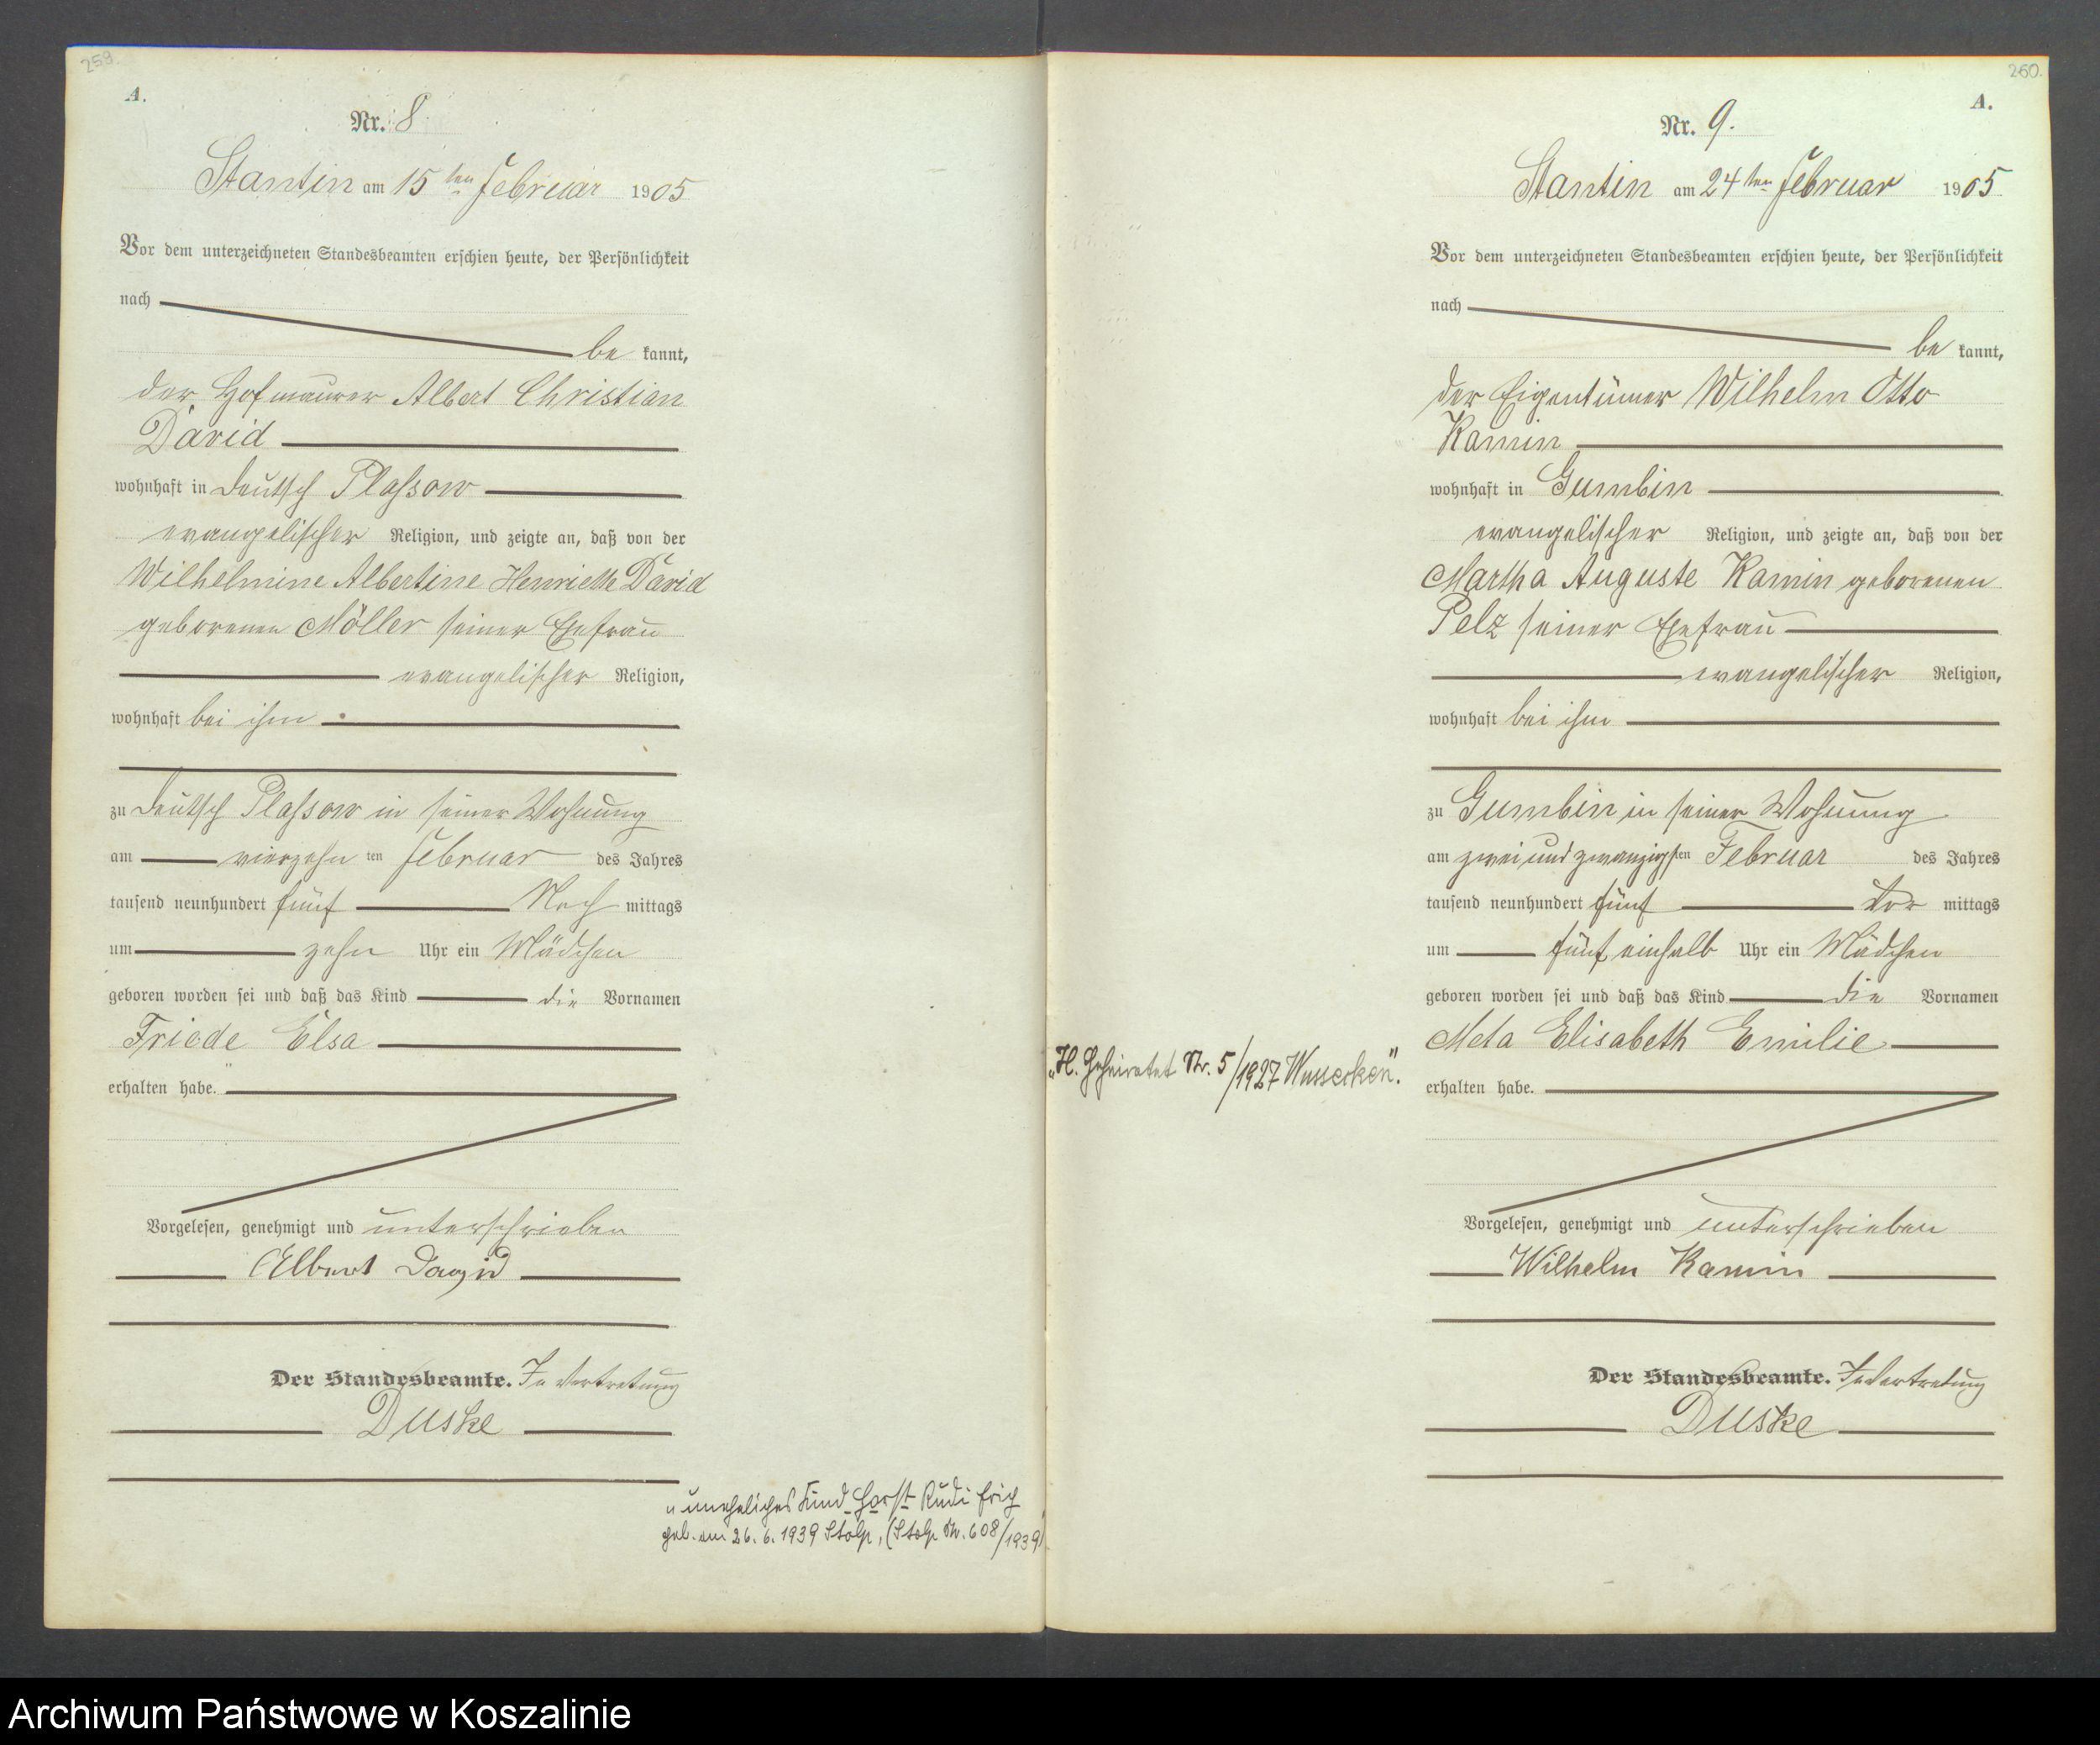 259.
A.
Nr. 8
Stantin am 15ten Februar 1905
Vor dem unterzeichneten Standesbeamten erschien heute, der Persönlichkeit
nach
be kannt,
der Hofmaurer Albert Christian
David
wohnhaft in Deutsch Plassow
evangelischer Religion, und zeigte an, daß von der
Wilhelmine Albertine Henriette David
geborenen Möller seiner Ehefrau
evangelischer Religion,
wohnhaft bei ihm
zu Deutsch Plassow in seiner Wohnung
am vierzehn ten Februar des Jahres
tausend neunhundert fünf Nach mittags
um zehn Uhr ein Mädchen
geboren worden sei und daß das Kind die Vornamen
Friede Elsa
erhalten habe.
Vorgelesen, genehmigt und unterschrieben
Albert David
Der Standesbeamte. In Vertretung
Duske
"uneheliches Kind Horst Rudi Erich
geb. am 26.6.1939 Stolp, (Stolp Nr. 608/1939)
260.
A.
Nr. 9.
Stantin am 24ten Februar 1905
Vor dem unterzeichneten Standesbeamten erschien heute, der Persönlichkeit
nach
be kannt,
der Eigentümer Wilhelm Otto
Kamin
wohnhaft in Gumbin
evangelischer Religion, und zeigte an, daß von der
Martha Auguste Kamin geborenen
Pelz seiner Ehefrau
evangelischer Religion,
wohnhaft bei ihm
zu Gumbin in seiner Wohnung
am zwei und zwanzigsten Februar des Jahres
tausend neunhundert fünf Vor mittags
um fünf einhalb Uhr ein Mädchen
geboren worden sei und daß das Kind die Vornamen
Meta Elisabeth Emilie
„H. Geheiratet Nr. 5/1927 Wusseken".
erhalten habe.
Vorgelesen, genehmigt und unterschrieben
Wilhelm Kamin
Der Standesbeamte. In Vertretung
Duske
Archiwum Państwowe w Koszalinie